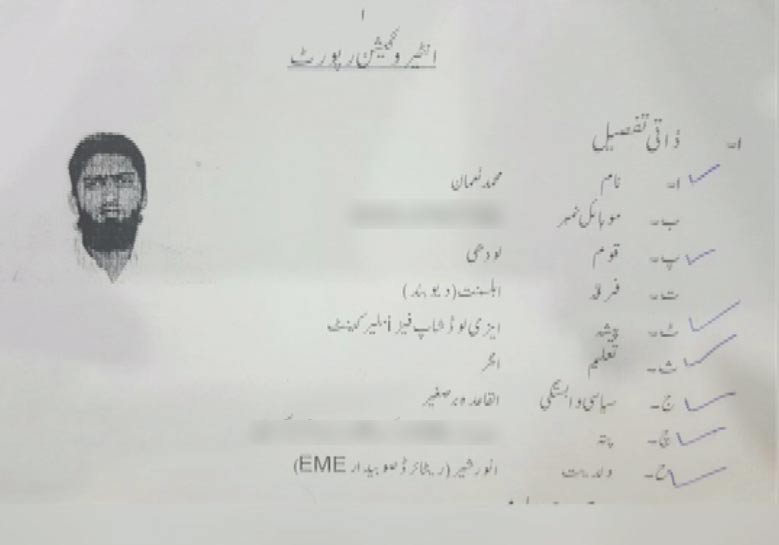 ا
انٹیروگیشن رپورٹ
۱۔ ذاتی تفصیل
ا۔ نام محمد نعمان
ب۔ موبائل نمبر
پ۔ قوم لودھی
ت۔ فرقہ اہلسنت (دیوبند)
ٹ۔ پیشہ ایزی لوڈ شاپ فیز 1 ملیر کینٹ
ث۔ تعلیم انٹر
ج۔ سیاسی وابستگی القاعدہ برصغیر
چ۔ پتہ
ح۔ ولدیت انور شیر (ریٹائرڈ صوبیدار EME)